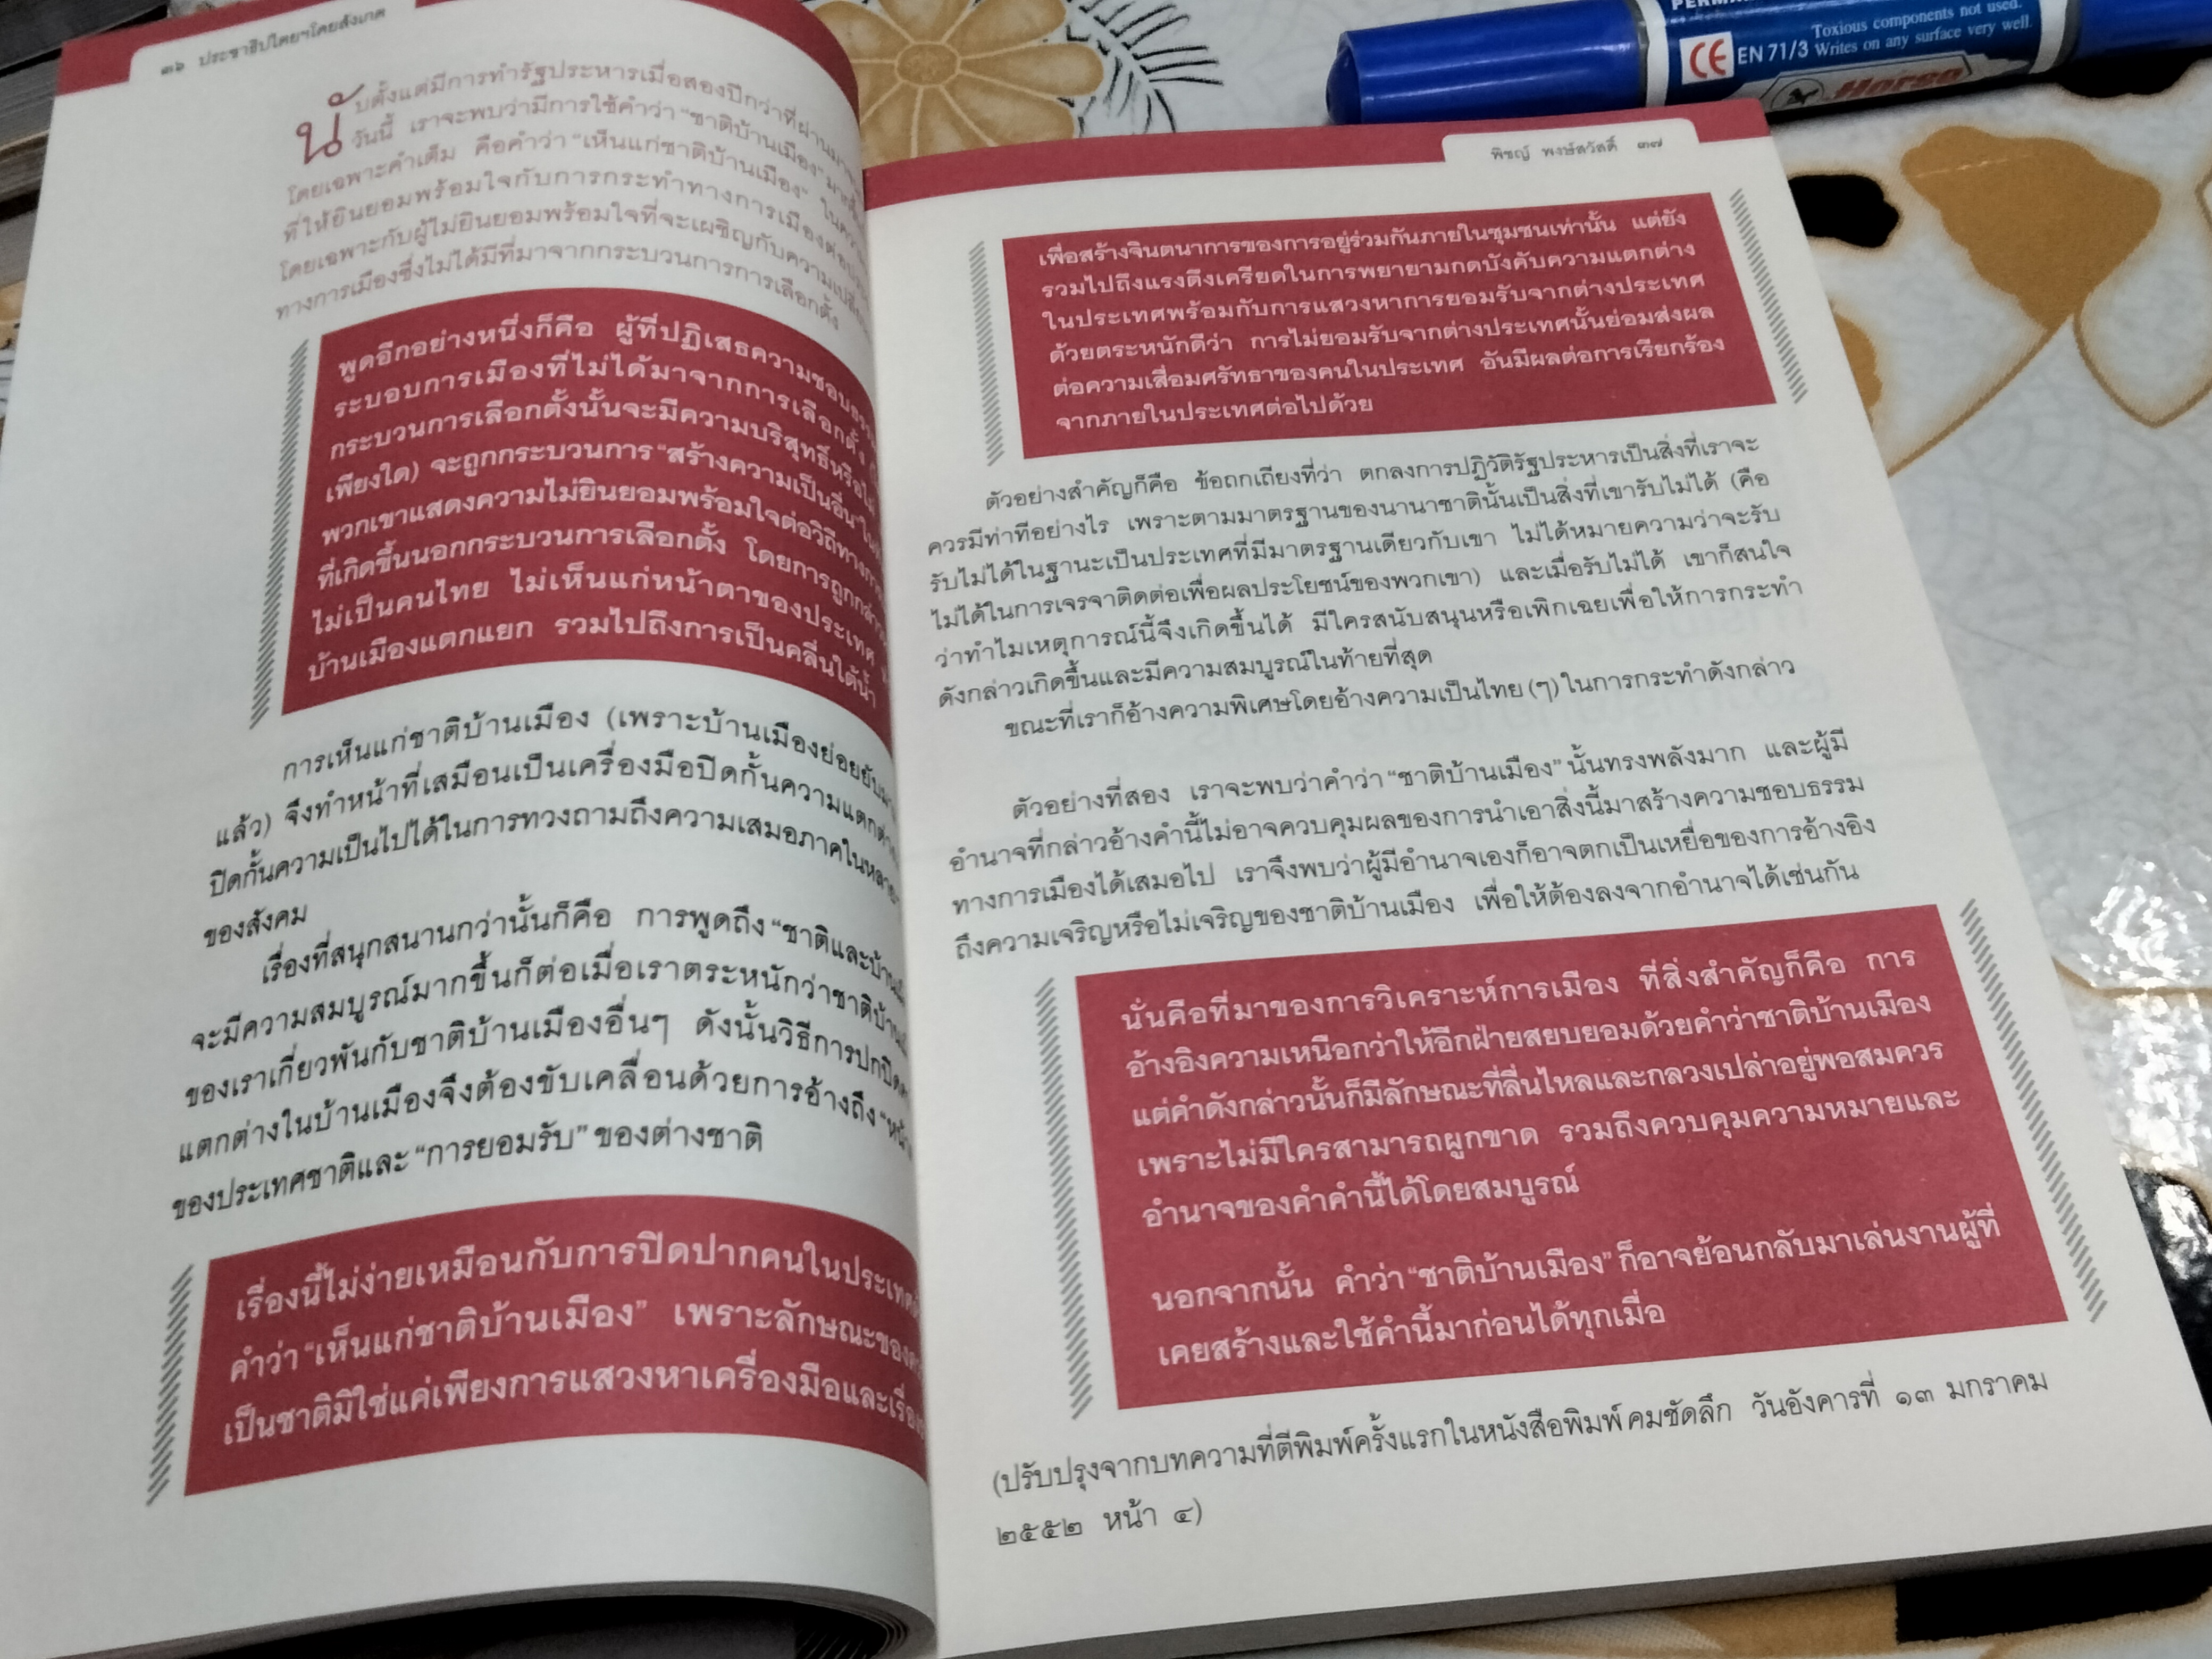 ๓๖ ประชาธิปไตยฯโดยสังเกต
นับตั้งแต่มีการทำรัฐประหารเมื่อสองปีกว่าที่ผ่านมา
วันนี้ เราจะพบว่ามีการใช้คำว่า “ชาติบ้านเมือง”
โดยเฉพาะคำเต็ม คือคำว่า “เห็นแก่ชาติบ้านเมือง”
ที่ให้ยินยอมพร้อมใจกับการกระทำทางการเมือง
โดยเฉพาะกับผู้ไม่ยินยอมพร้อมใจที่จะเผชิญกับความ
ทางการเมืองซึ่งไม่ได้มีที่มาจากกระบวนการการเลือกตั้ง
พูดอีกอย่างหนึ่งก็คือ ผู้ที่ปฏิเสธความชอบ
ระบอบการเมืองที่ไม่ได้มาจากการเลือกตั้ง
กระบวนการเลือกตั้งนั้นจะมีความบริสุทธิ์หรือไม่
เพียงใด) จะถูกกระบวนการ “สร้างความเป็นอื่น”
พวกเขาแสดงความไม่ยินยอมพร้อมใจต่อวิถีทาง
ที่เกิดขึ้นนอกกระบวนการเลือกตั้ง โดยการถูก
ไม่เป็นคนไทย ไม่เห็นแก่หน้าตาของประเทศ
บ้านเมืองแตกแยก รวมไปถึงการเป็นคลื่นใต้น้ำ
การเห็นแก่ชาติบ้านเมือง (เพราะบ้านเมืองย่อยยับ
แล้ว) จึงทำหน้าที่เสมือนเป็นเครื่องมือปิดกั้นความแตกต่าง
ปิดกั้นความเป็นไปได้ในการทวงถามถึงความเสมอภาคใน
ของสังคม
เรื่องที่สนุกสนานกว่านั้นก็คือ การพูดถึง “ชาติและ
จะมีความสมบูรณ์มากขึ้นก็ต่อเมื่อเราตระหนักว่าชาติ
ของเราเกี่ยวพันกับชาติบ้านเมืองอื่นๆ ดังนั้นวิธีการ
แตกต่างในบ้านเมืองจึงต้องขับเคลื่อนด้วยการอ้างถึง
ของประเทศชาติและ “การยอมรับ” ของต่างชาติ
เรื่องนี้ไม่ง่ายเหมือนกับการปิดปากคนในประเทศ
คำว่า “เห็นแก่ชาติบ้านเมือง” เพราะลักษณะของ
เป็นชาติมิใช่แค่เพียงการแสวงหาเครื่องมือและ
พิชญ์ พงษ์สวัสดิ์ ๓๗
เพื่อสร้างจินตนาการของการอยู่ร่วมกันภายในชุมชนเท่านั้น แต่ยัง
รวมไปถึงแรงตึงเครียดในการพยายามกดบังคับความแตกต่าง
ในประเทศพร้อมกับการแสวงหาการยอมรับจากต่างประเทศ
ด้วยตระหนักดีว่า การไม่ยอมรับจากต่างประเทศนั้นย่อมส่งผล
ต่อความเสื่อมศรัทธาของคนในประเทศ อันมีผลต่อการเรียกร้อง
จากภายในประเทศต่อไปด้วย
ตัวอย่างสำคัญก็คือ ข้อถกเถียงที่ว่า ตกลงการปฏิวัติรัฐประหารเป็นสิ่งที่เราจะ
ควรมีท่าทีอย่างไร เพราะตามมาตรฐานของนานาชาตินั้นเป็นสิ่งที่เขารับไม่ได้ (คือ
รับไม่ได้ในฐานะเป็นประเทศที่มีมาตรฐานเดียวกับเขา ไม่ได้หมายความว่าจะรับ
ไม่ได้ในการเจรจาติดต่อเพื่อผลประโยชน์ของพวกเขา) และเมื่อรับไม่ได้ เขาก็สนใจ
ว่าทำไมเหตุการณ์นี้จึงเกิดขึ้นได้ มีใครสนับสนุนหรือเพิกเฉยเพื่อให้การกระทำ
ดังกล่าวเกิดขึ้นและมีความสมบูรณ์ในท้ายที่สุด
ขณะที่เราก็อ้างความพิเศษโดยอ้างความเป็นไทย (ๆ) ในการกระทำดังกล่าว
ตัวอย่างที่สอง เราจะพบว่าคำว่า “ชาติบ้านเมือง” นั้นทรงพลังมาก และผู้มี
อำนาจที่กล่าวอ้างคำนี้ไม่อาจควบคุมผลของการนำเอาสิ่งนี้มาสร้างความชอบธรรม
ทางการเมืองได้เสมอไป เราจึงพบว่าผู้มีอำนาจเองก็อาจตกเป็นเหยื่อของการอ้างอิง
ถึงความเจริญหรือไม่เจริญของชาติบ้านเมือง เพื่อให้ต้องลงจากอำนาจได้เช่นกัน
นั่นคือที่มาของการวิเคราะห์การเมือง ที่สิ่งสำคัญก็คือ การ
อ้างอิงความเหนือกว่าให้อีกฝ่ายสยบยอมด้วยคำว่าชาติบ้านเมือง
แต่คำดังกล่าวนั้นก็มีลักษณะที่ลื่นไหลและกลวงเปล่าอยู่พอสมควร
เพราะไม่มีใครสามารถผูกขาด รวมถึงควบคุมความหมายและ
อำนาจของคำคำนี้ได้โดยสมบูรณ์
นอกจากนั้น คำว่า “ชาติบ้านเมือง” ก็อาจย้อนกลับมาเล่นงานผู้ที่
เคยสร้างและใช้คำนี้มาก่อนได้ทุกเมื่อ
(ปรับปรุงจากบทความที่ตีพิมพ์ครั้งแรกในหนังสือพิมพ์ คมชัดลึก วันอังคารที่ ๑๓ มกราคม
๒๕๕๒ หน้า ๔)
CE EN 71/3 Toxious components not used.
Writes on any surface very well.
Horse